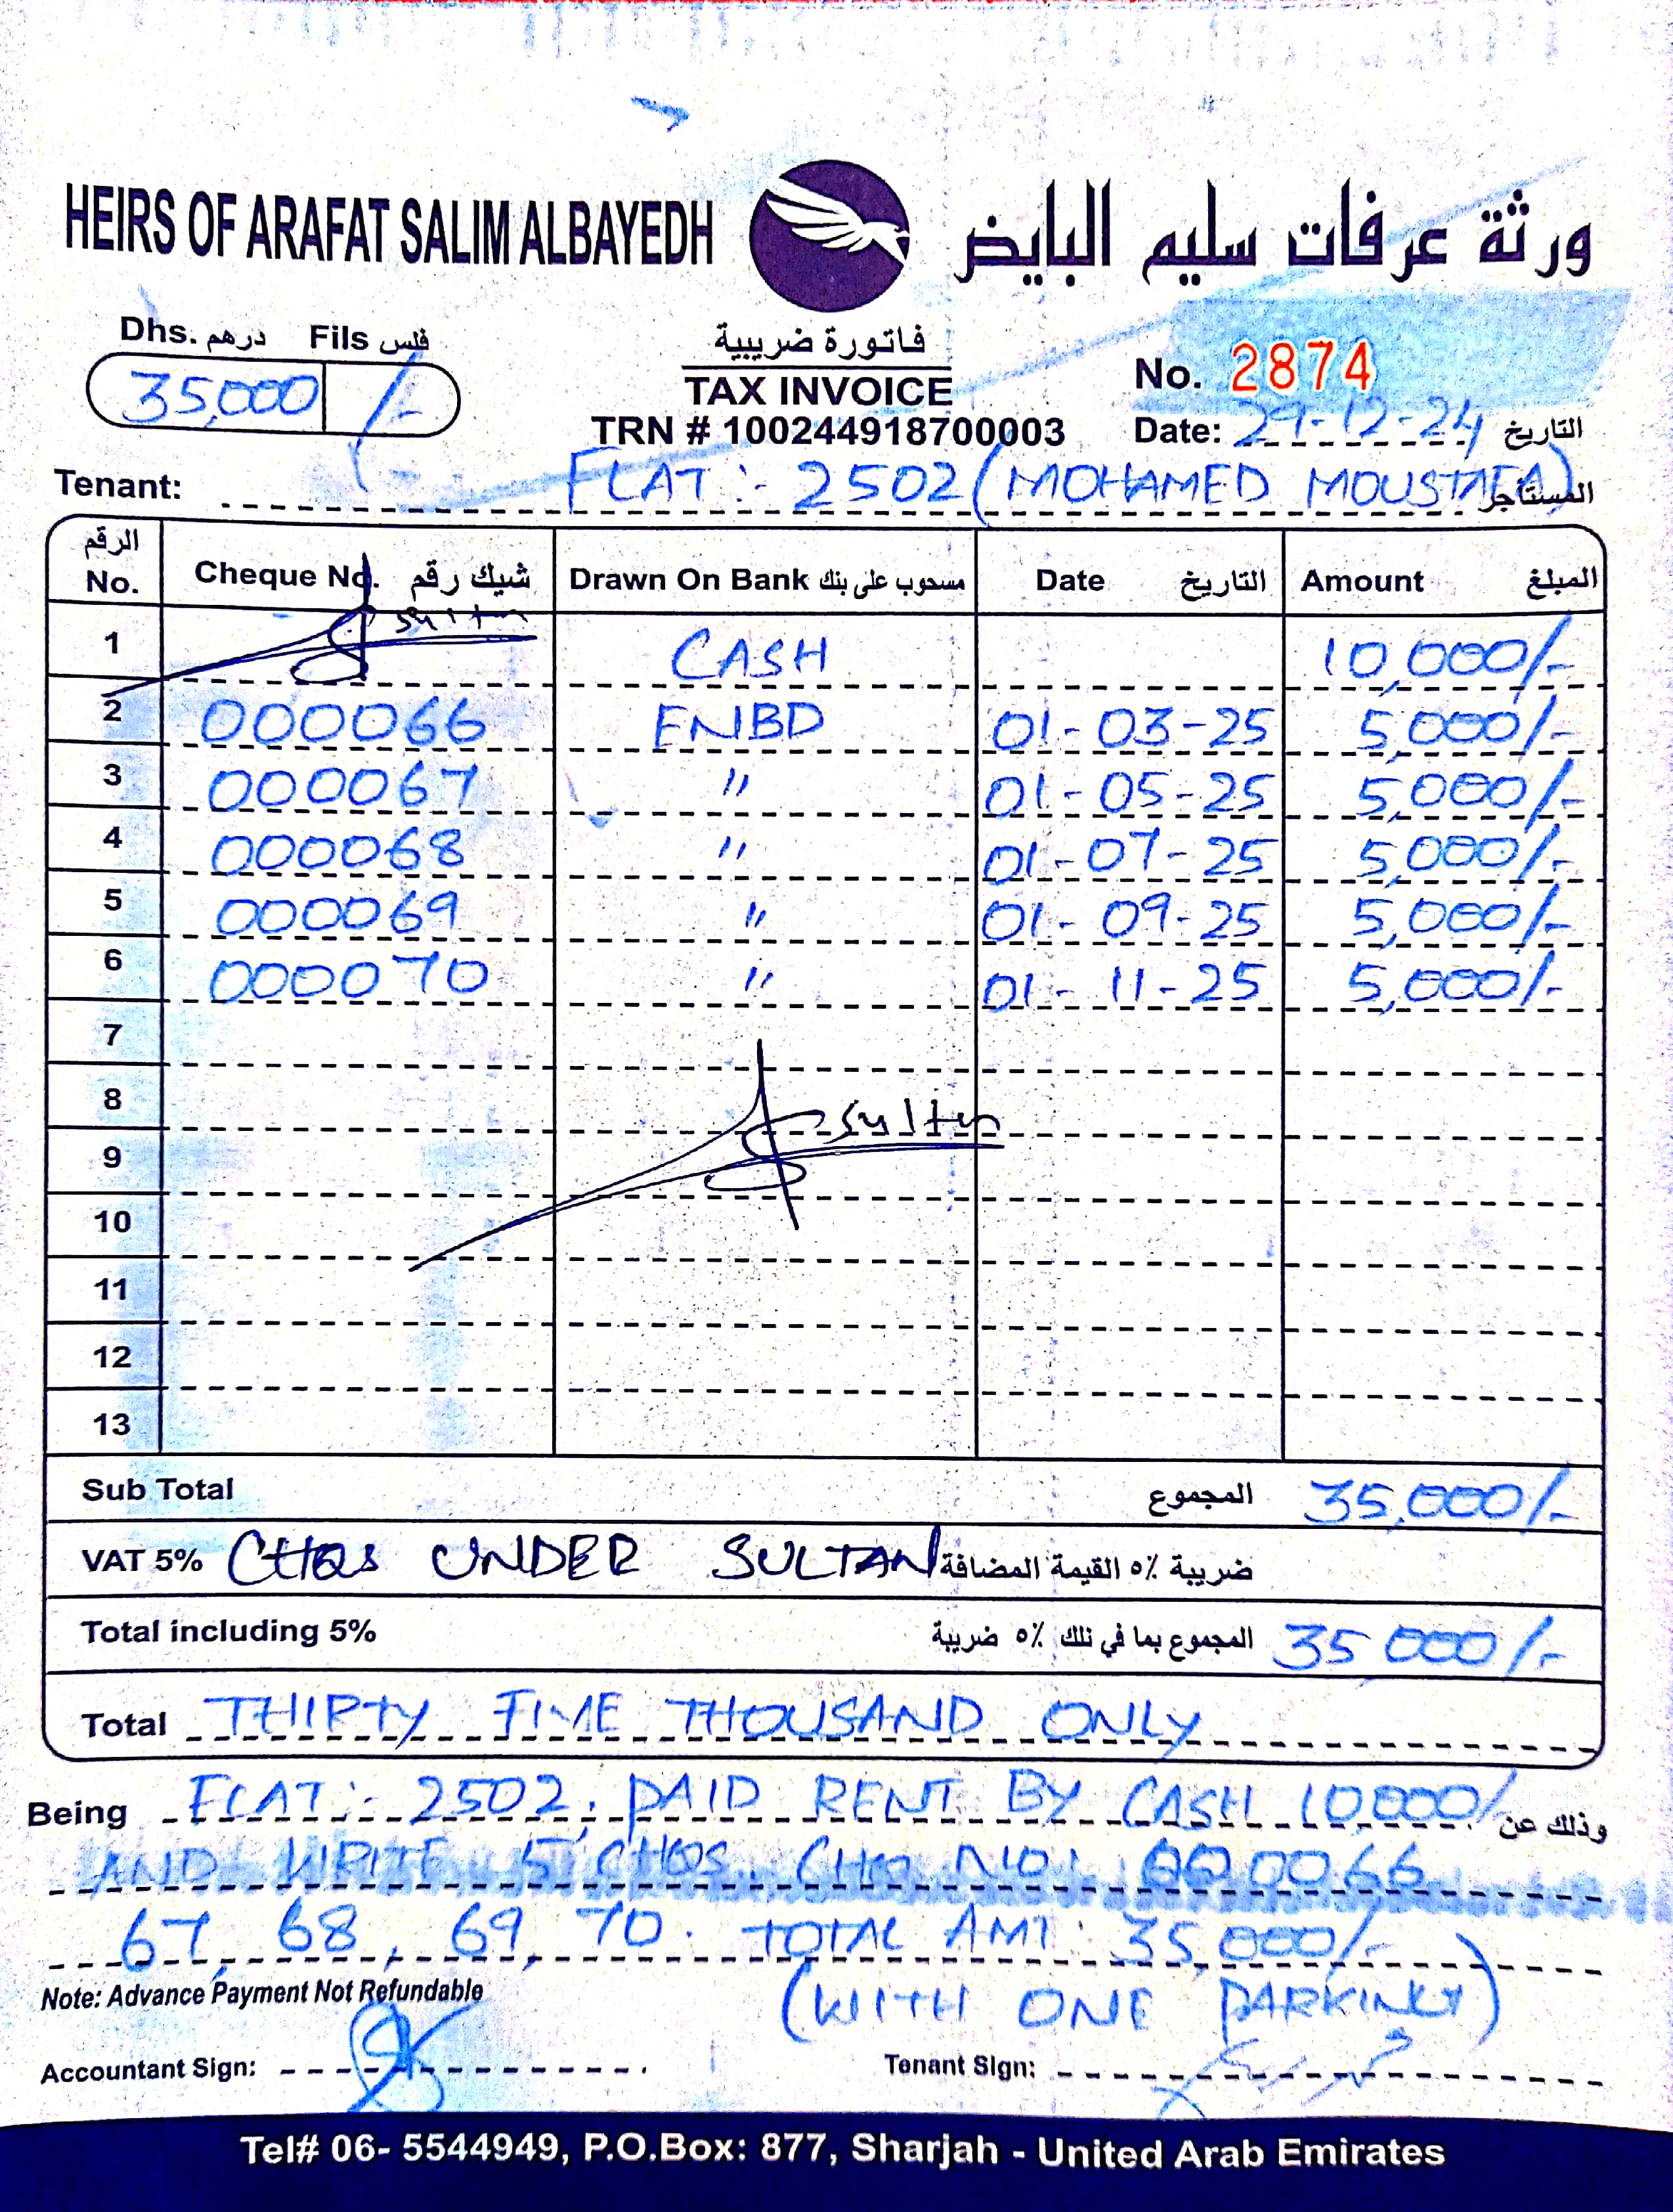 HEIRS OF ARAFAT SALIM ALBAYEDH ورثة عرفات سليم البايض
Dhs. درهم Fils فلس
35,000 /-
فاتورة ضريبية
TAX INVOICE
TRN # 100244918700003
No. 2874
Date: 29-12-24 التاريخ
Tenant: FLAT:- 2502 (MOHAMED MOUSTAFA) المستأجر
الرقم No. Cheque No. شيك رقم Drawn On Bank مسحوب على بنك Date التاريخ Amount المبلغ
1 Sultan CASH 10,000/-
2 000066 ENBD 01-03-25 5,000/-
3 000067 " 01-05-25 5,000/-
4 000068 " 01-07-25 5,000/-
5 000069 " 01-09-25 5,000/-
6 000070 " 01-11-25 5,000/-
7
8 Sultan
9
10
11
12
13
Sub Total المجموع 35,000/-
VAT 5% CHQS UNDER SULTAN ضريبة ٥٪ القيمة المضافة
Total including 5% المجموع بما في ذلك ٥٪ ضريبة 35 000/-
Total THIRTY FIVE THOUSAND ONLY
Being FLAT:- 2502, PAID RENT BY CASH 10,000/- وذلك عن
AND WRITE 5 CHQS. CHQ NO: 000066
67, 68, 69, 70. TOTAL AMT: 35,000/-
Note: Advance Payment Not Refundable (WITH ONE PARKING)
Accountant Sign: Tenant Sign:
Tel# 06- 5544949, P.O.Box: 877, Sharjah - United Arab Emirates